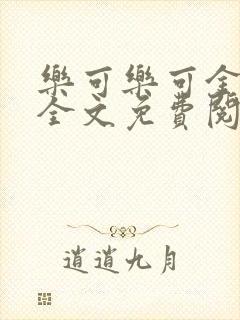 樂可樂可全
全文免費閱
逍逍九月